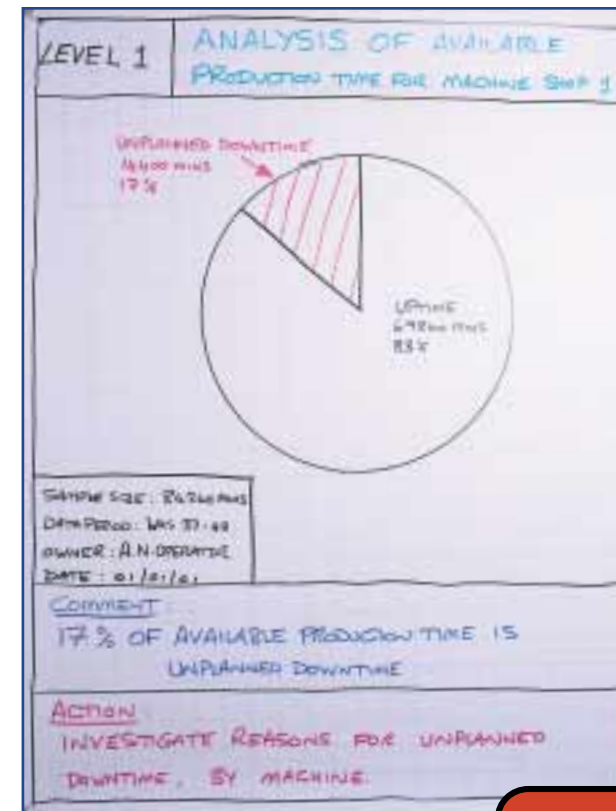 LEVEL 1
ANALYSIS OF AVAILABLE
PRODUCTION TIME FOR MACHINE SHOP 1
UNPLANNED DOWNTIME
14400 MINS
17%
UPTIME
MINS
83%
SAMPLE SIZE: MINS
DATA PERIOD:
OWNER: A.N. OPERATIVE
DATE: 01/01/01
COMMENT
17% OF AVAILABLE PRODUCTION TIME IS
UNPLANNED DOWNTIME
ACTION
INVESTIGATE REASONS FOR UNPLANNED
DOWNTIME, BY MACHINE.